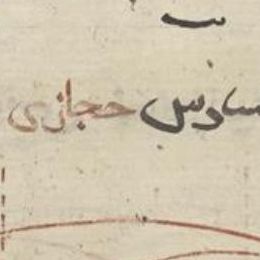 سادس حجازی